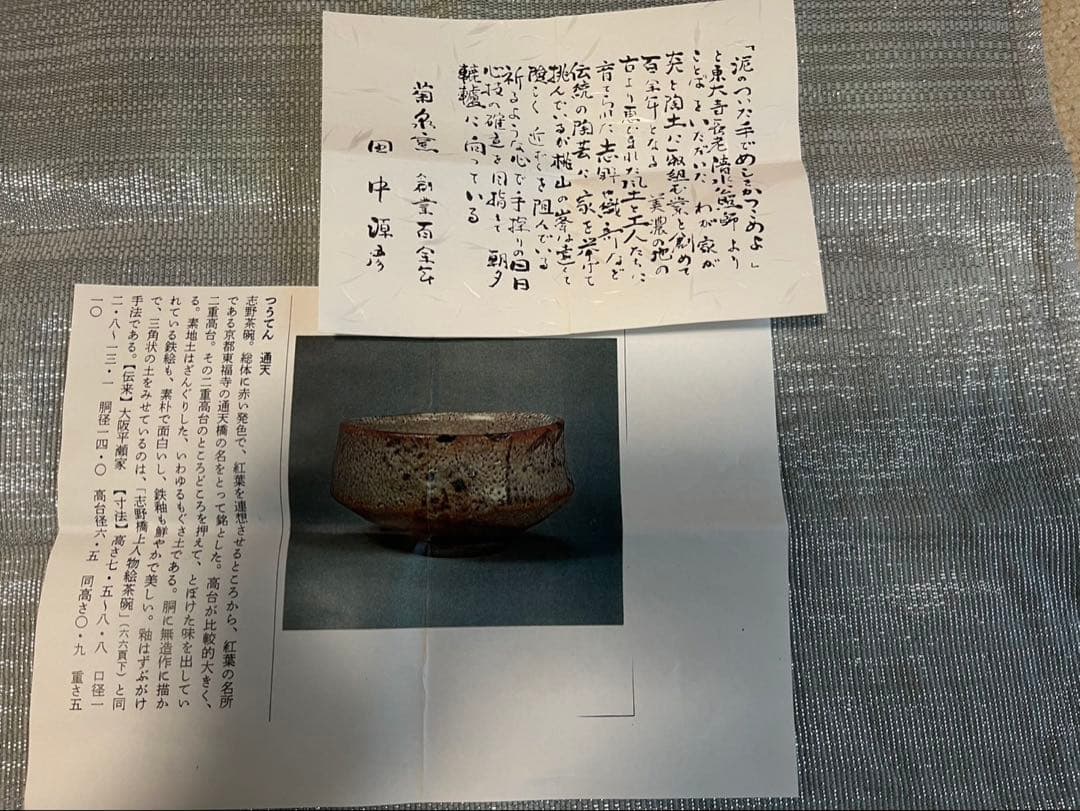 「泥のついた手でめしをかっこめよ」
と東大寺長老 清水公照師 より
ことばをいただいた わが家が
炎と陶土に取組む業を創めて
百余年となる 美濃の地の
古より恵まれた風土と工人たちに
育てられた志野織部など
伝統の陶芸に家を挙げて
挑んでいるが桃山の峯は遠くて
険しく 近づくを阻んでいる
祈るような心で手探りの毎日
心技の確立を目指して 朝夕
轆轤に向っている
菊泉窯 創業百余年
田中源彦
つうてん 通天
志野茶碗。総体に赤い発色で、紅葉を連想させるところから、紅葉の名所
である京都東福寺の通天橋の名をとって銘とした。高台が比較的大きく、
二重高台。その二重高台のところどころを押えて、とぼけた味を出してい
る。素地土はざんぐりした、いわゆるもぐさ土である。胴に無造作に描か
れている鉄絵も、素朴で面白いし、鉄釉も鮮やかで美しい。釉はずぶがけ
で、三角状の土をみせているのは、「志野橋上人物絵茶碗」(六六頁下)と同
手法である。【伝来】大阪平瀬家 【寸法】高さ七・五～八・八 口径一
二・八～一三・一 胴径一四・〇 高台径六・五 同高さ〇・九 重さ五
一〇